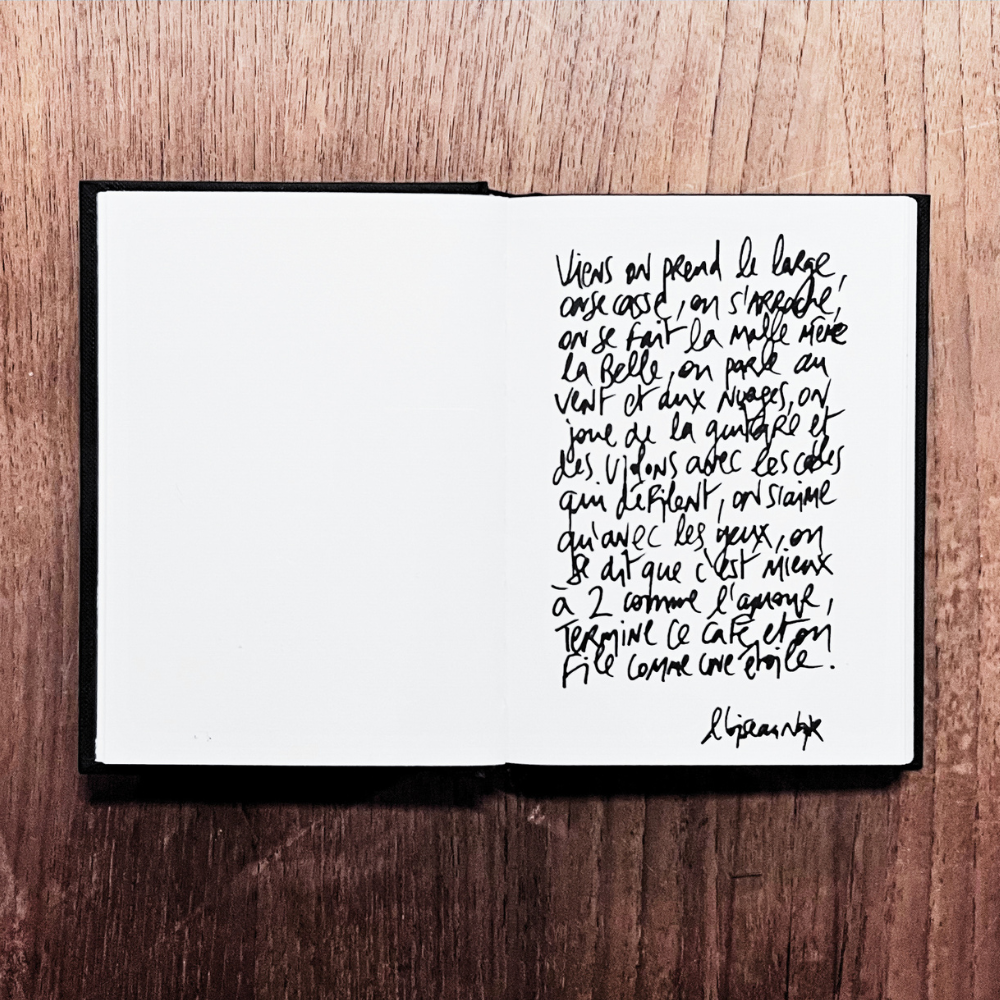 Viens on prend le large,
on se casse, on s'arrache,
on se fait la malle même
la Belle, on parle au
vent et aux nuages, on
joue de la guitare et
des violons avec les cordes
qui défilent, on s'aime
qu'avec les yeux, on
se dit que c'est mieux
à 2 comme l'amour,
termine ce café et on
file comme une étoile.
l'oiseau Noir